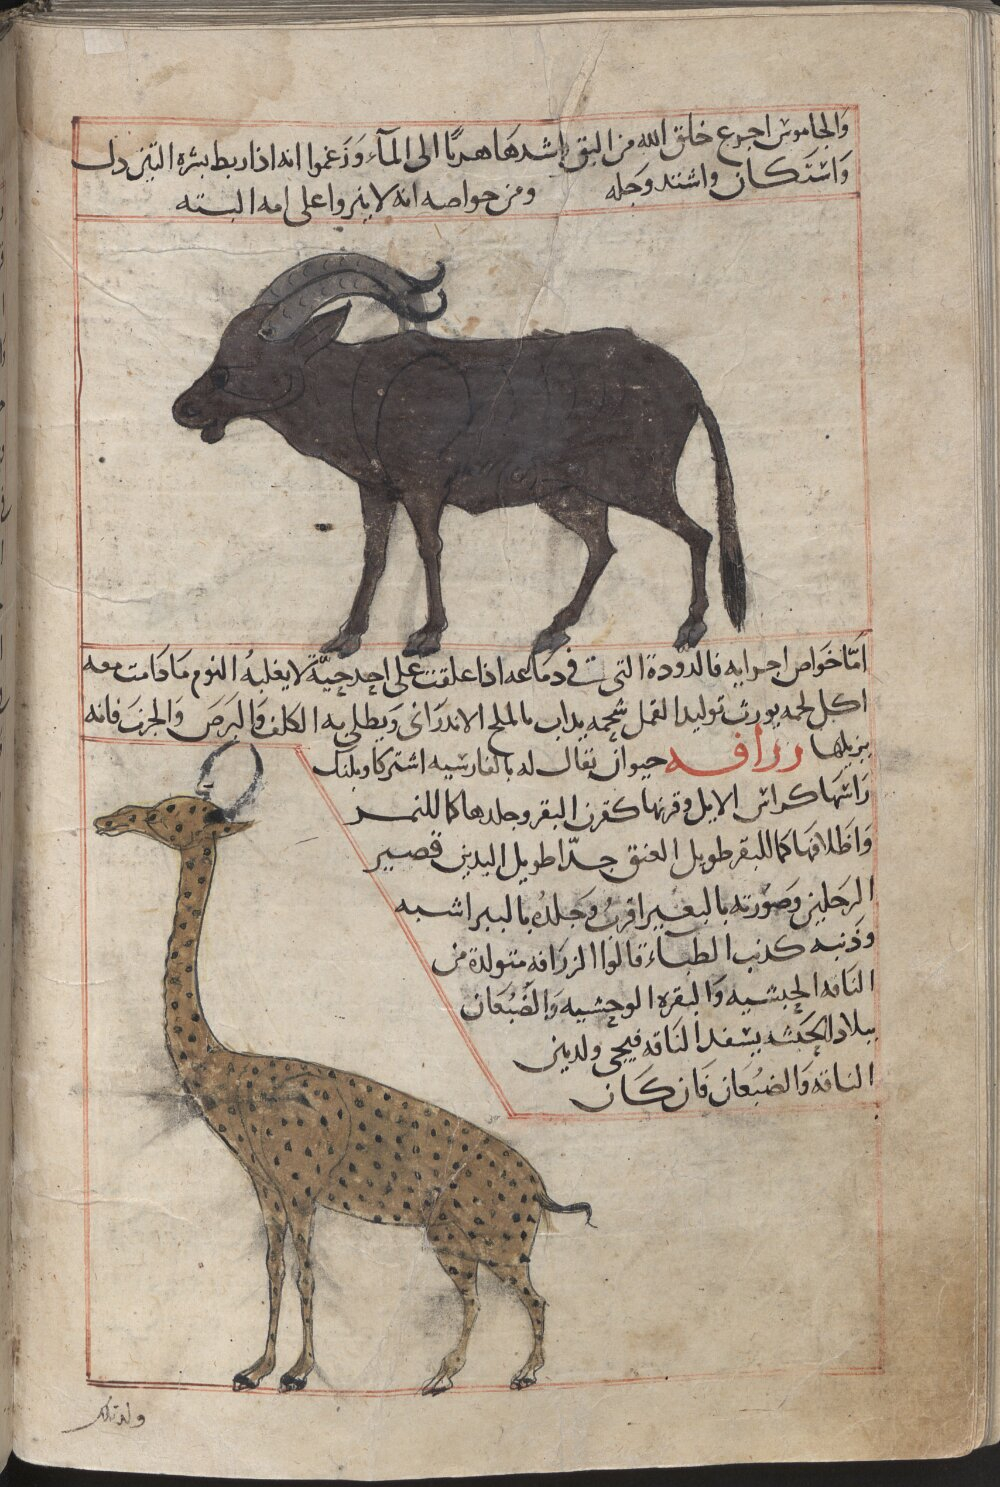 والجاموس اجزع خلق الله من البق واشدها هربا الى المآء وزعموا انه اذا ربط بشره التين ذل
واشتكان واشتد وجله ومن خواصه انه لا ينزوا على امه البته
امّا خواص اجزايه فالدودة التى فى دماغه اذا علقت على احد حيّة لا يغلبه النوم ما دامت معه
اكل لحمه يورث توليد القمل شحمه يذاب بالملح الاندرانى ويطلى به الكلف والبرص والجرب فانه
يزيلها زرافه حيوان يقال له بالفارسيه اشتركاوبلنك
راسها كراس الابل وقرنها كقرن البقر وجلدها كاللنمر
واظلافها كاللبقر طويل العنق جدّا طويل اليدين قصير
الرجلين وصورته بالبعير اقرب وجلده بالببر اشبه
وذنبه كذنب الظباء قالوا الزرافه متولدة من
الناقه الحبشيه والبقره الوحشيه والضبعان
ببلاد الحبشه يسفد الناقه فيجى ولد بين
الناقه والضبعان فان كان
ولد تلك